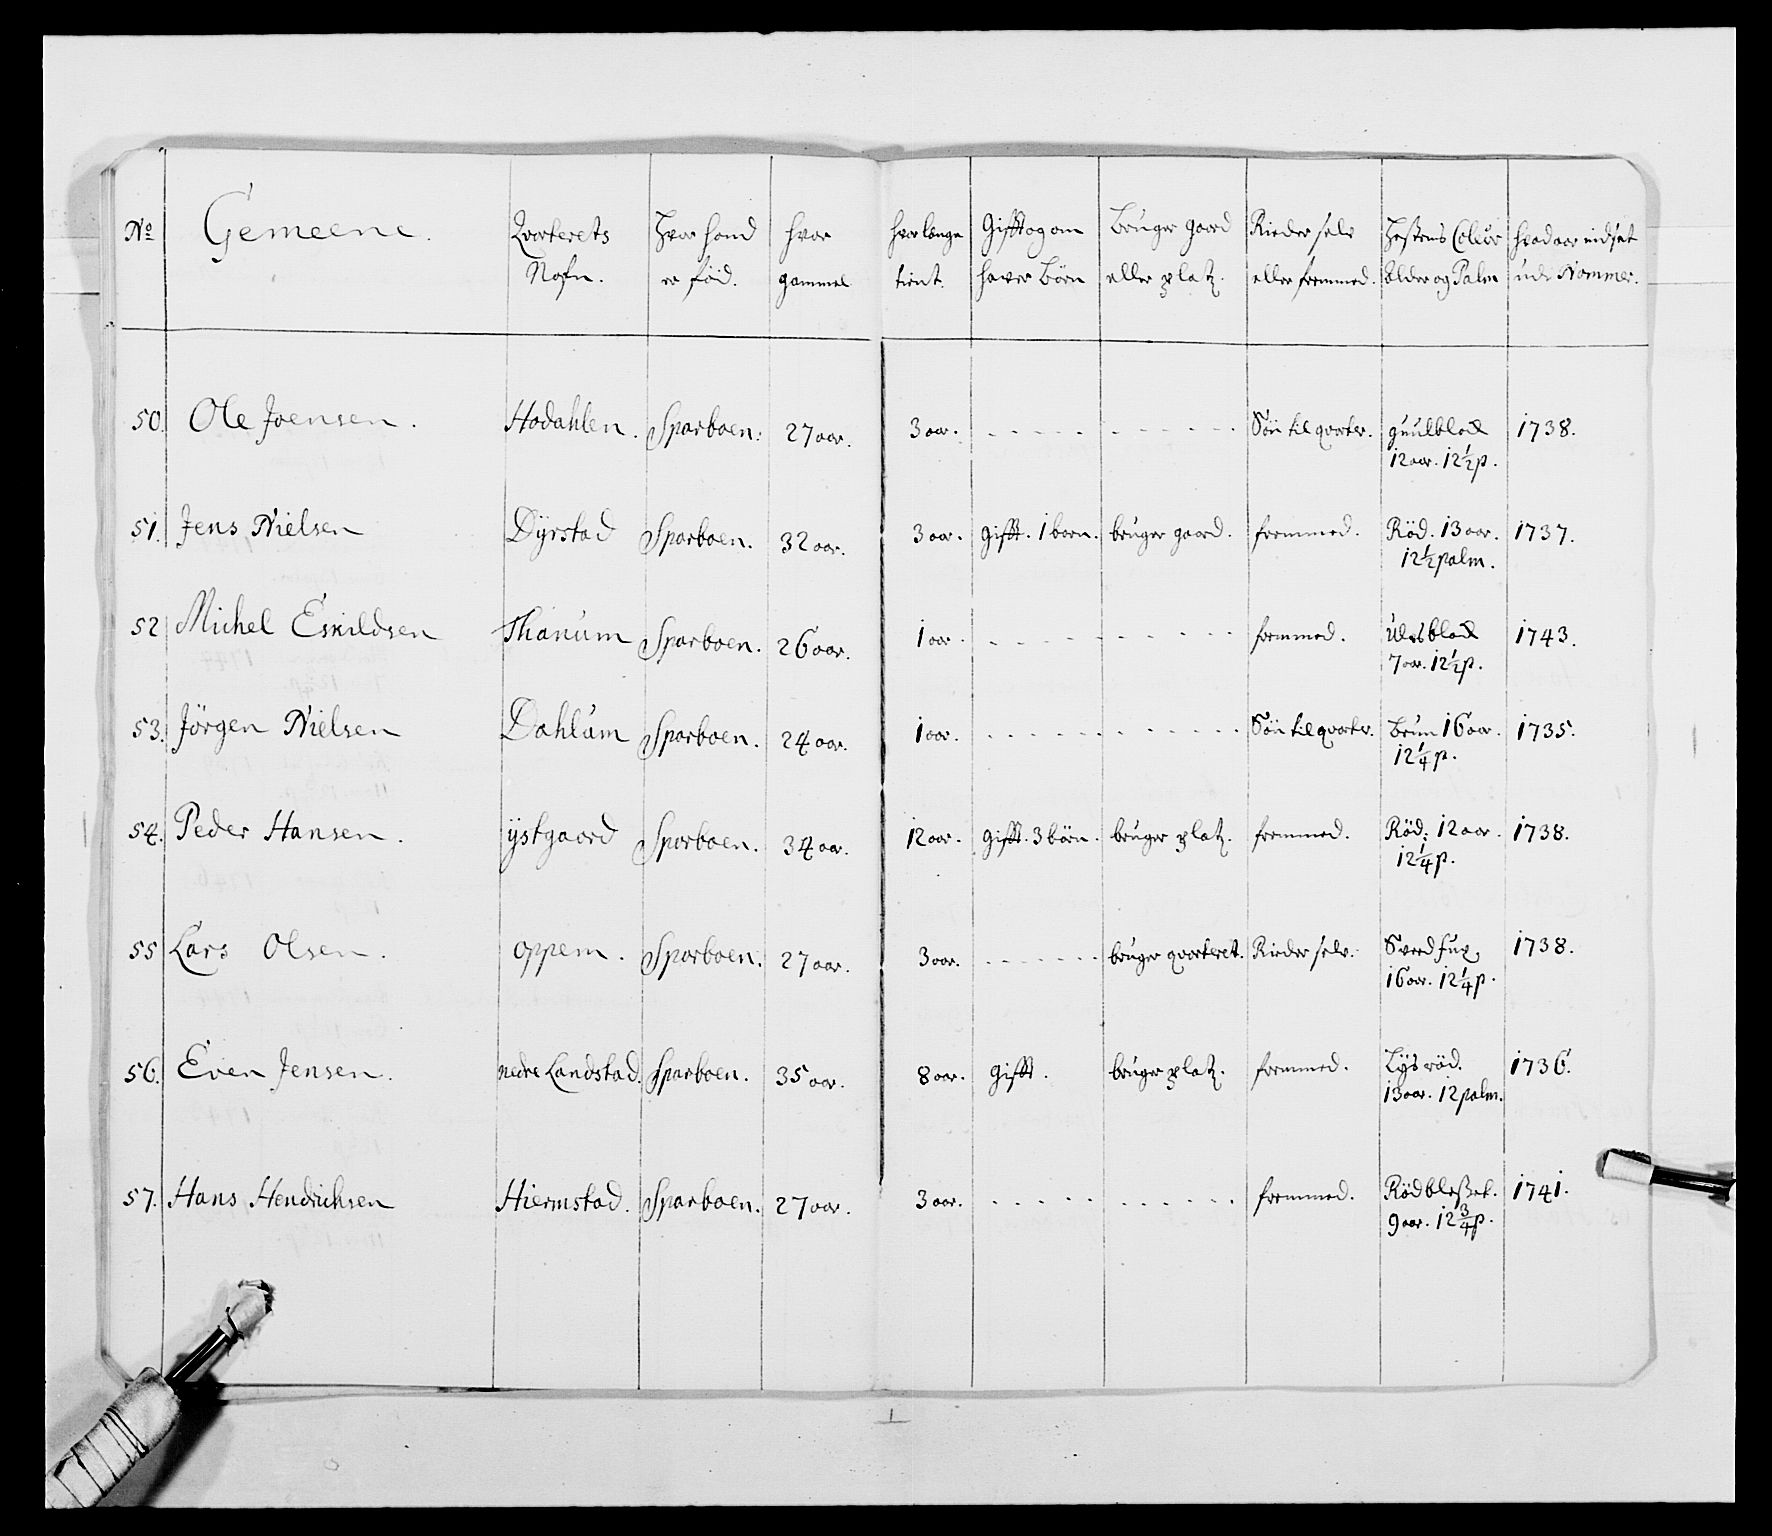 No Gemeene. Qvarterets Nafn. Hvor hand er född. Hvor gammel Hvor lenge tient. Gifft og om haver Börn Bruger gaard eller platz. Rieder selv eller fremmed. Hestens Coleur Alder og Palm hvad aar indsat udi Nommer.
50. Ole Joensen. Hodahlen. Sparboen. 27 aar. 3 aar. Sön til qvarter. guulblak 1738.
12 aar. 12 1/2 p.
51. Jens Nielsen Dÿrstad Sparboen. 32 aar. 3 aar. Gifft. 1 barn. bruger gaard. fremmed. Röd. 13 aar. 1737.
12 1/2 palm.
52 Michel Eskildsen Thanum Sparboen. 26 aar. 1 aar. fremmed. Ulvsblak 1743.
7 aar. 12 1/2 p.
53. Jörgen Nielsen Dahlum Sparboen. 24 aar. 1 aar. Sön til qvarter. brun 16 aar. 1735.
12 1/4 p.
54. Peder Hansen. ÿstgaard Sparboen. 34 aar. 12 aar. Gifft. 3 börn. bruger platz. fremmed. Röd. 12 aar. 1738.
12 1/4 p.
55 Lars Olsen. oppem. Sparboen. 27 aar. 3 aar. bruger qvarteret. Rieder selv. Svedfux 1738.
16 aar. 12 1/4 p.
56. Even Jensen. nedre Landstad. Sparboen. 35 aar. 8 aar. Gifft. bruger platz. fremmed. Lÿsröd. 1736.
13 aar. 12 palm.
57. Hans Hendrichsen Hiermstad. Sparboen. 27 aar. 3 aar. fremmed. Rödblesset. 1741.
9 aar. 12 3/4 p.